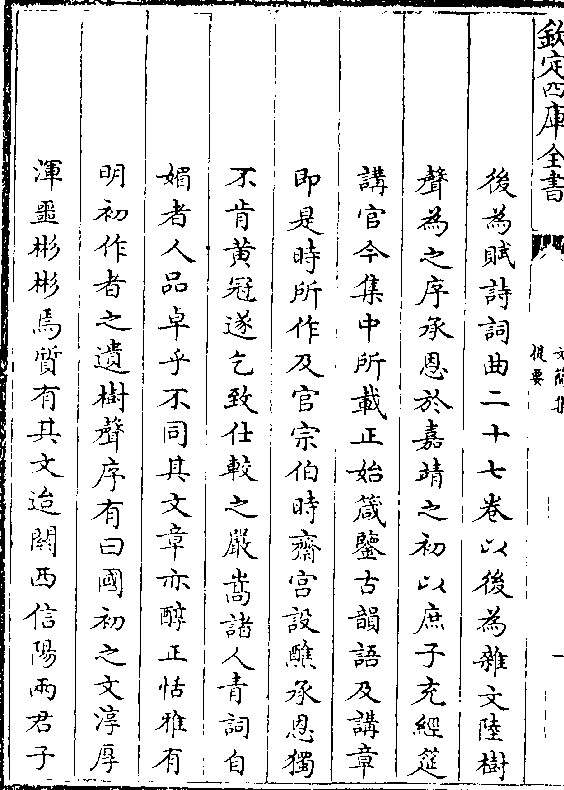 欽定四庫全書
文簡集
提要
一
後為賦詩詞曲二十七卷以後為雜文陸樹
聲為之序承恩於嘉靖之初以庶子充經筵
講官今集中所載正始箴鑒古韻語及講章
即是時所作及官宗伯時齋宮設醮承恩獨
不肯黃冠遂乞致仕較之嚴嵩諸人青詞自
媚者人品卓乎不同其文章亦醇正恬雅有
明初作者之遺樹聲序有曰國初之文淳厚
渾噩彬彬焉質有其文迨關西信陽兩君子